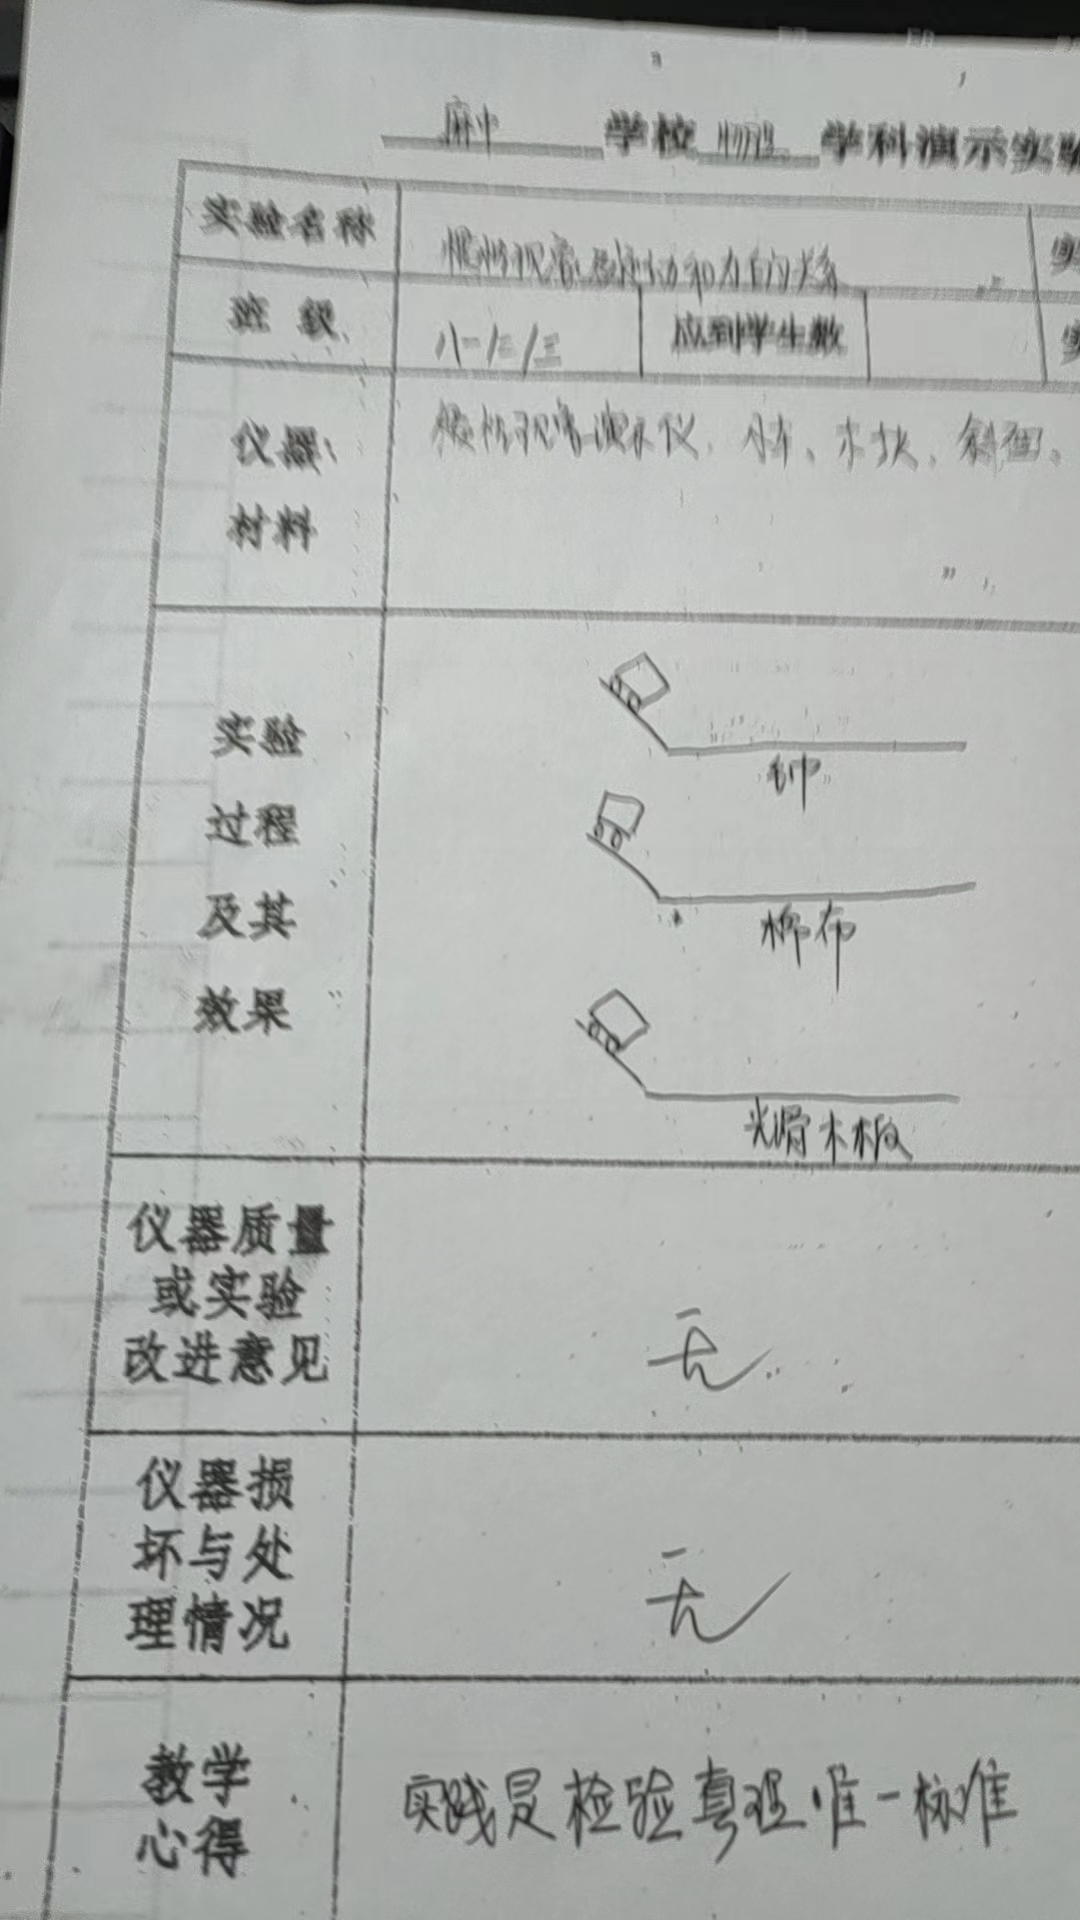 麻中 学校 物理 学科演示实验
实验名称 惯性现象 运动和力的关系 实
班级 八一/二/三 应到学生数 实
仪器 材料 惯性现象演示仪、小车、木块、斜面、
实验过程及其效果
毛巾
棉布
光滑木板
仪器质量
或实验
改进意见 无
仪器损
坏与处
理情况 无
教学
心得 实践是检验真理唯一标准